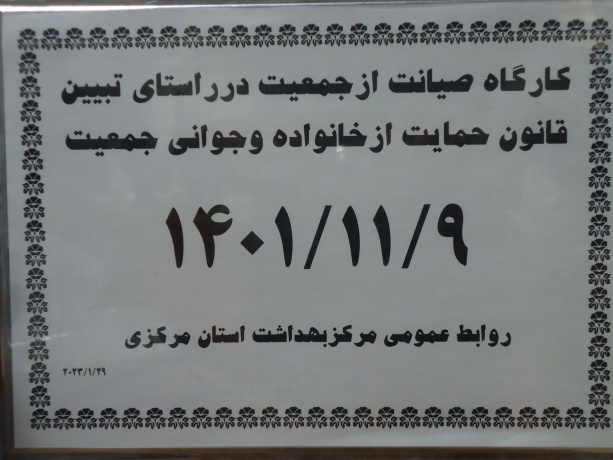 کارگاه صیانت از جمعیت در راستای تبیین
قانون حمایت از خانواده و جوانی جمعیت
۱۴۰۱/۱۱/۹
روابط عمومی مرکز بهداشت استان مرکزی
۲۰۲۳/۱/۲۹